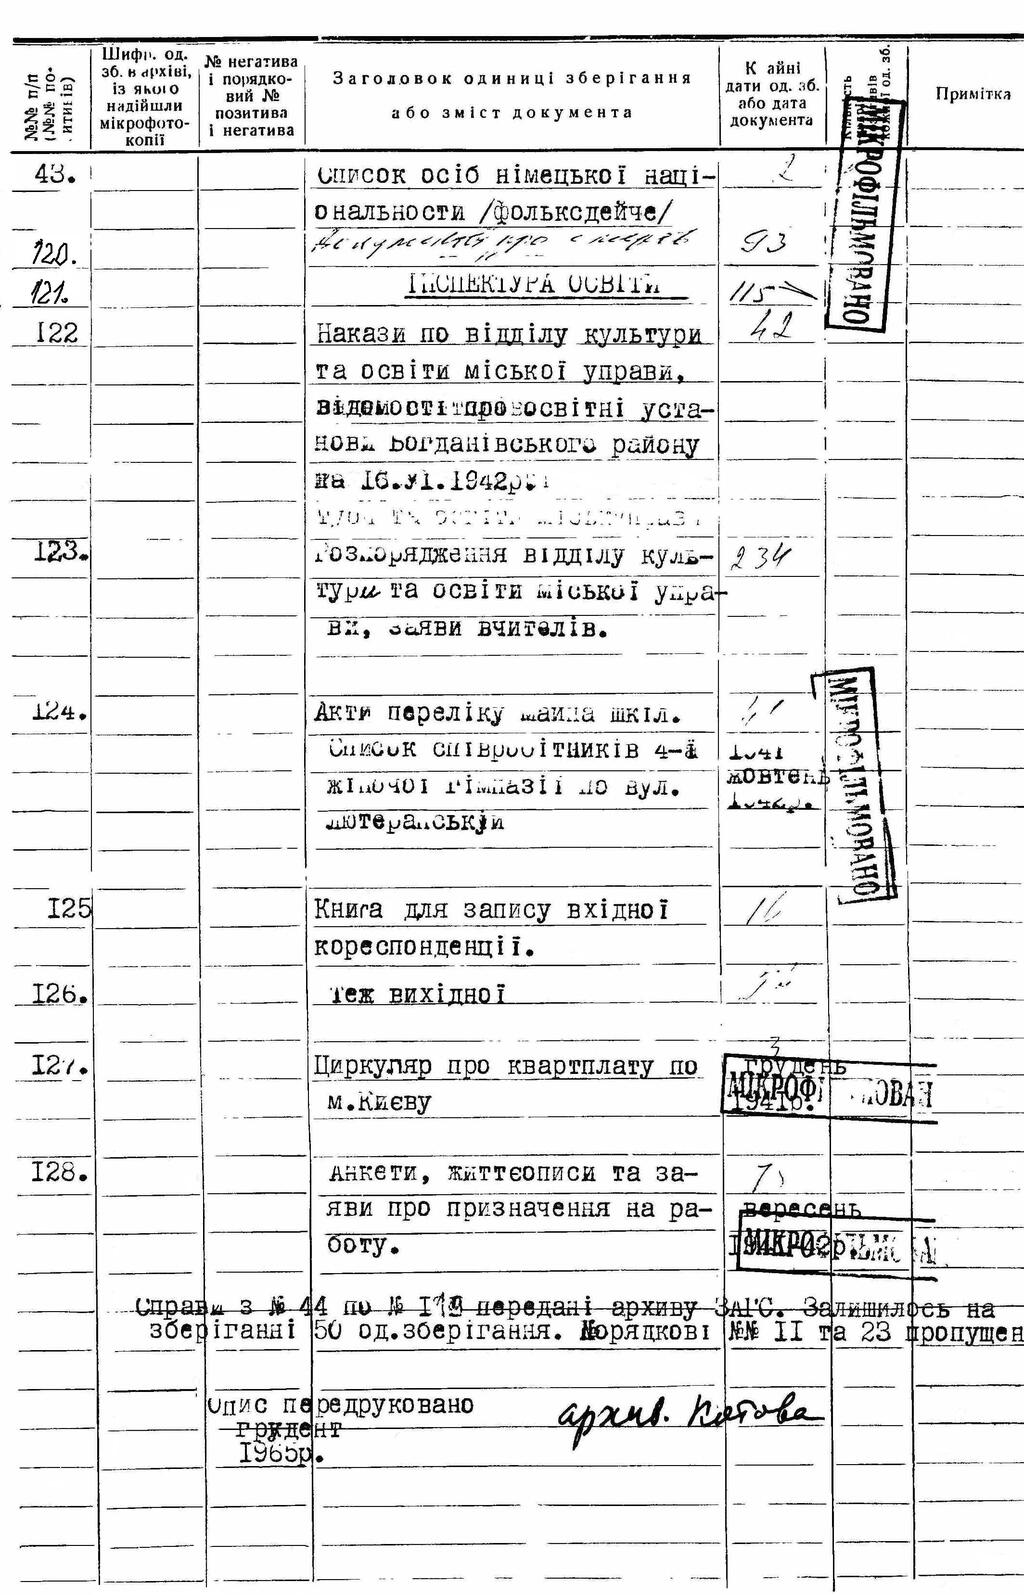 №№ п/п
(№№ по-
Шифр. од.
зб. в архіві,
із якого
надійшли
мікрофото-
копії
№ негатива
і порядко-
вий №
позитива
і негатива
Заголовок одиниці зберігання
або зміст документа
К айні
дати од. зб.
або дата
документа
Кількість
Примітка
МІКРОФІЛЬМОВАНО
43. Список осіб німецької наці- 2
ональности /фольксдейче/
120. Документи про 93
121. ІНСПЕКТУРА ОСВІТИ 115
I22 Накази по відділу культури 42
та освіти міської управи,
відомості про освітні уста-
нови Богданівського району
на I6.XI.I942р.
I23. Розпорядження відділу куль- 234
тури та освіти міської упра-
ви, заяви вчителів.
I24. Акти переліку майна шкіл. 41
Список співробітників 4-ї I941
жіночої гімназії по вул. жовтень
Лютеранській I942р.
МІКРОФІЛЬМОВАНО
I25 Книга для запису вхідної 16
кореспонденції.
I26. Теж вихідної
3
I27. Циркуляр про квартплату по грудень
м.Києву I94Iр.
МІКРОФІЛЬМОВАН
I28. Анкети, життєописи та за-
яви про призначення на ра- вересень
боту. I942р.
МІКРОФІЛЬМОВА
Справи з № 44 по № II9 передані архиву ЗАГС. Залишилось на
зберіганні 50 од.зберігання. Порядкові №№ II та 23 пропущен
Опис передруковано
грудент
I965р.
архив. Котова